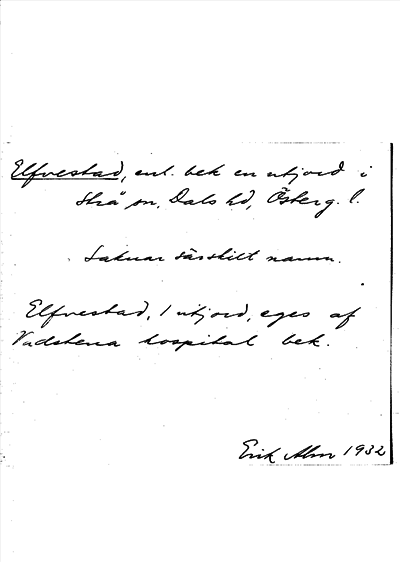 Elfvestad, enl. bek en utjord i
Strå sn, Dals hd, Österg. l.
Saknar särskilt namn.
Elfvestad, 1 utjord, eges af
Vadstena hospital bek.
Erik Alm 1932